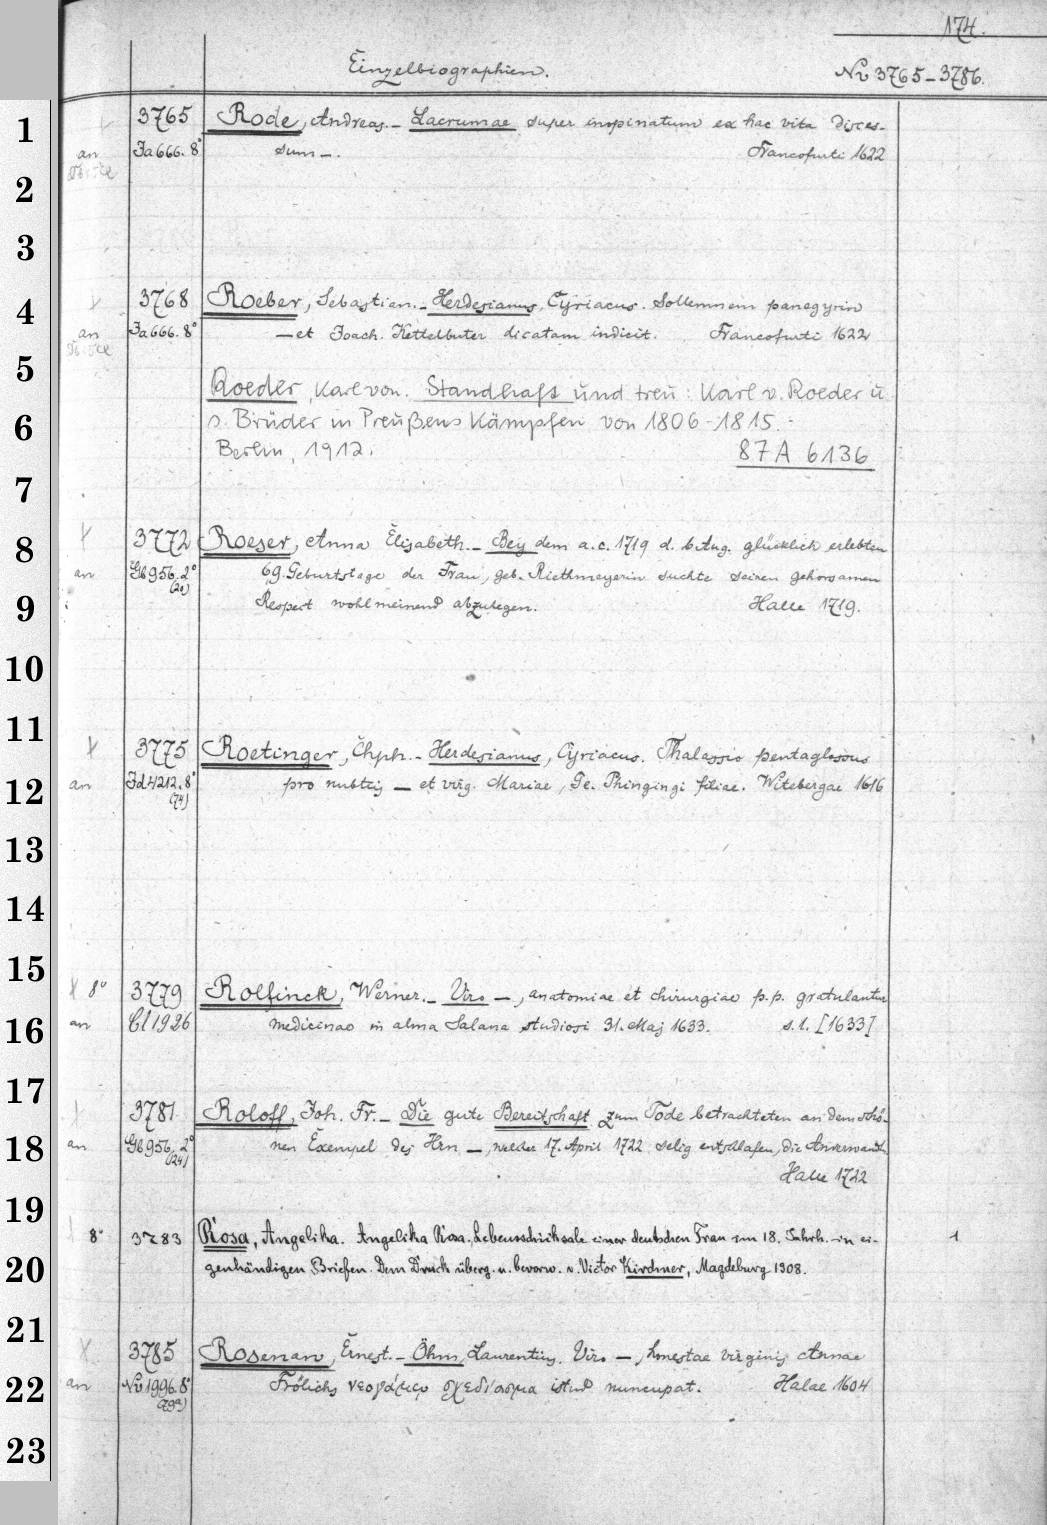 174.
Einzelbiographien.
No 3765-3786.
1
3765 Rode, Andreas. - Lacrumae super inopinatum ex hac vita disces-
an Ja 666. 8° sum -. Francofurti 1622
2
3
4
3768 Roeber, Sebastian. - Herdesianus, Cyriacus. Sollemnem panegyrin
an Ja 666. 8° - et Joach. Kettelbuter dicatam indicit. Francofurti 1622
5
Roeder, Karl von. Standhaft und treu: Karl v. Roeder u.
6
s. Brüder in Preußens Kämpfen von 1806-1815.-
Berlin, 1912. 87 A 6136
7
8
3772 Roeser, Anna Elisabeth. - Bey dem a.c. 1719 d. 6 Aug. glücklich erlebten
an Gb 956. 2° (20) 69. Geburtstage der Frau, geb. Riethmeyerin suchte seinen gehorsamen
9
Respect wohlmeinend abzulegen. Halle 1719.
10
11
3775 Roetinger, Chph. - Herdesianus, Cyriacus. Thalassio pentaglossus
12
an Jd 4212. 8° (74) pro nubtijs - et virg. Mariae, Ge. Thingingi filiae. Witebergae 1616
13
14
15
8° 3779 Rolfinck, Werner. - Viro -, anatomiae et chirurgiae p.p. gratulantur
16
an Cl 1926 medicinae in alma Salana studiosi 31. Maj 1633. s.l. [1633]
17
3781 Roloff, Joh. Fr. - Die gute Bereitschaft zum Tode betrachteten an dem schö-
18
an Gb 956. 2° (24) nen Exempel des Hrn -, welcher 17. April 1722 selig entschlafen, die Anverwandt.
Halle 1722
19
8° 3783 Rosa, Angelika. Angelika Rosa. Lebensschicksale einer deutschen Frau im 18. Jahrh. in ei- 1
20
genhändigen Briefen. Dem Druck überg. u. bevorw. v. Victor Kirchner, Magdeburg 1908.
21
3785 Rosenau, Ernest. - Öhm, Laurentius. Viro -, honestae virginis Annae
22
an No 1996. 8° (29a) Frölichs νεογάμῳ σχεδίασμα istud nuncupat. Halae 1604
23